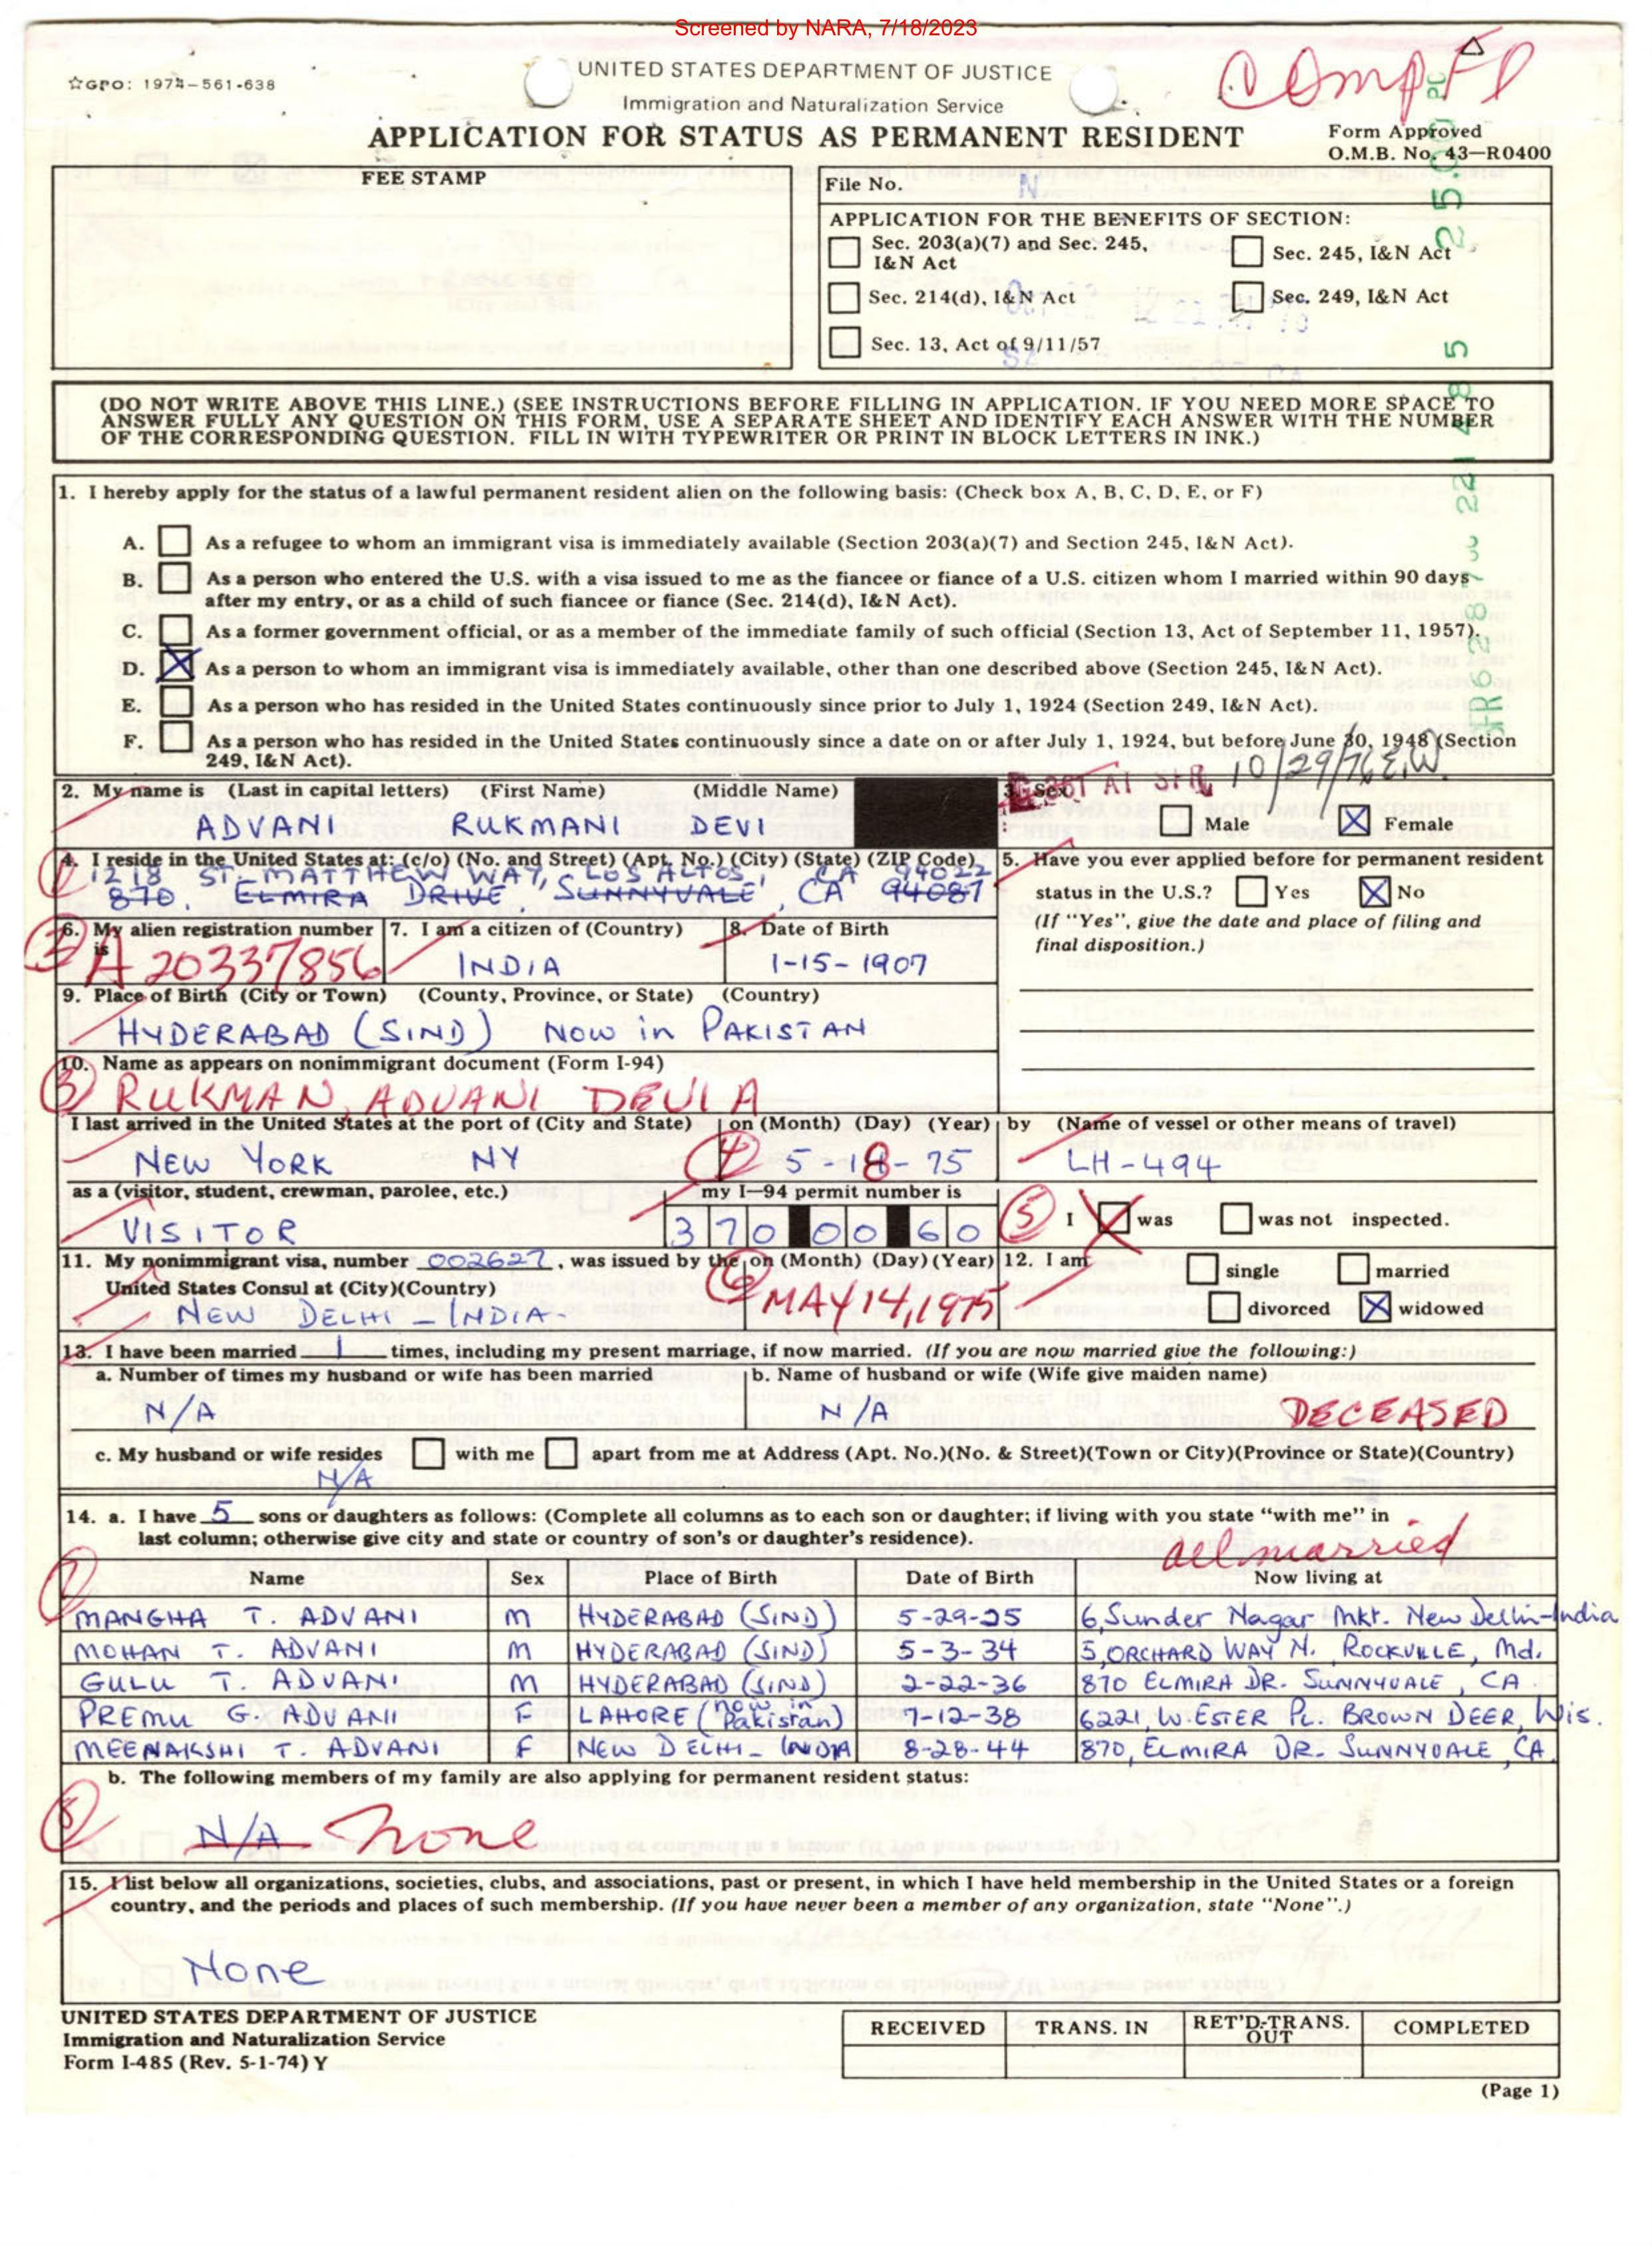 Screened by NARA, 7/18/2023
☆GPO: 1974-561-638
UNITED STATES DEPARTMENT OF JUSTICE
Immigration and Naturalization Service
APPLICATION FOR STATUS AS PERMANENT RESIDENT
Form Approved
O.M.B. No. 43-R0400
FEE STAMP
File No.
APPLICATION FOR THE BENEFITS OF SECTION:
Sec. 203(a)(7) and Sec. 245, I&N Act
Sec. 245, I&N Act
Sec. 214(d), I&N Act
Sec. 249, I&N Act
Sec. 13, Act of 9/11/57
(DO NOT WRITE ABOVE THIS LINE.) (SEE INSTRUCTIONS BEFORE FILLING IN APPLICATION. IF YOU NEED MORE SPACE TO
ANSWER FULLY ANY QUESTION ON THIS FORM, USE A SEPARATE SHEET AND IDENTIFY EACH ANSWER WITH THE NUMBER
OF THE CORRESPONDING QUESTION. FILL IN WITH TYPEWRITER OR PRINT IN BLOCK LETTERS IN INK.)
1. I hereby apply for the status of a lawful permanent resident alien on the following basis: (Check box A, B, C, D, E, or F)
A. As a refugee to whom an immigrant visa is immediately available (Section 203(a)(7) and Section 245, I&N Act).
B. As a person who entered the U.S. with a visa issued to me as the fiancee or fiance of a U.S. citizen whom I married within 90 days
after my entry, or as a child of such fiancee or fiance (Sec. 214(d), I&N Act).
C. As a former government official, or as a member of the immediate family of such official (Section 13, Act of September 11, 1957).
D. X As a person to whom an immigrant visa is immediately available, other than one described above (Section 245, I&N Act).
E. As a person who has resided in the United States continuously since prior to July 1, 1924 (Section 249, I&N Act).
F. As a person who has resided in the United States continuously since a date on or after July 1, 1924, but before June 30, 1948 (Section
249, I&N Act).
10/29/76 E.W.
2. My name is (Last in capital letters) (First Name) (Middle Name)
ADVANI RUKMANI DEVI
3. Sex
Male X Female
4. I reside in the United States at: (c/o) (No. and Street) (Apt. No.) (City) (State) (ZIP Code)
1218 ST. MATTHEW WAY, LOS ALTOS, CA 94022
870. ELMIRA DRIVE, SUNNYVALE, CA 94087
5. Have you ever applied before for permanent resident
status in the U.S.? Yes X No
(If "Yes", give the date and place of filing and
final disposition.)
6. My alien registration number is
A20337856
7. I am a citizen of (Country)
INDIA
8. Date of Birth
1-15-1907
9. Place of Birth (City or Town) (County, Province, or State) (Country)
HYDERABAD (SIND) NOW in PAKISTAN
10. Name as appears on nonimmigrant document (Form I-94)
RUKMAN, ADVANI DEVI A
I last arrived in the United States at the port of (City and State) on (Month) (Day) (Year) by (Name of vessel or other means of travel)
NEW YORK NY 4 5-18-75 LH-494
as a (visitor, student, crewman, parolee, etc.) my I-94 permit number is
VISITOR 370 00 60
5 I X was was not inspected.
11. My nonimmigrant visa, number 002627, was issued by the on (Month) (Day) (Year)
United States Consul at (City)(Country)
NEW DELHI - INDIA - 6 MAY 14, 1975
12. I am single married
divorced X widowed
13. I have been married 1 times, including my present marriage, if now married. (If you are now married give the following:)
a. Number of times my husband or wife has been married b. Name of husband or wife (Wife give maiden name)
N/A N/A DECEASED
c. My husband or wife resides with me apart from me at Address (Apt. No.)(No. & Street)(Town or City)(Province or State)(Country)
N/A
14. a. I have 5 sons or daughters as follows: (Complete all columns as to each son or daughter; if living with you state "with me" in
last column; otherwise give city and state or country of son's or daughter's residence).
all married
7
Name Sex Place of Birth Date of Birth Now living at
MANGHA T. ADVANI M HYDERABAD (SIND) 5-29-25 6, Sunder Nagar Mkt. New Delhi-India
MOHAN T. ADVANI M HYDERABAD (SIND) 5-3-34 5, ORCHARD WAY N. ROCKVILLE, Md.
GULU T. ADVANI M HYDERABAD (SIND) 2-22-36 870 ELMIRA DR. SUNNYVALE, CA
PREMU G. ADVANI F LAHORE (now in Pakistan) 7-12-38 6221, W. ESTER PL. BROWN DEER, Wis.
MEENAKSHI T. ADVANI F NEW DELHI - INDIA 8-28-44 870, ELMIRA DR. SUNNYVALE, CA
b. The following members of my family are also applying for permanent resident status:
8 N/A none
15. I list below all organizations, societies, clubs, and associations, past or present, in which I have held membership in the United States or a foreign
country, and the periods and places of such membership. (If you have never been a member of any organization, state "None".)
None
UNITED STATES DEPARTMENT OF JUSTICE
Immigration and Naturalization Service
Form I-485 (Rev. 5-1-74) Y
RECEIVED TRANS. IN RET'D-TRANS. OUT COMPLETED
(Page 1)